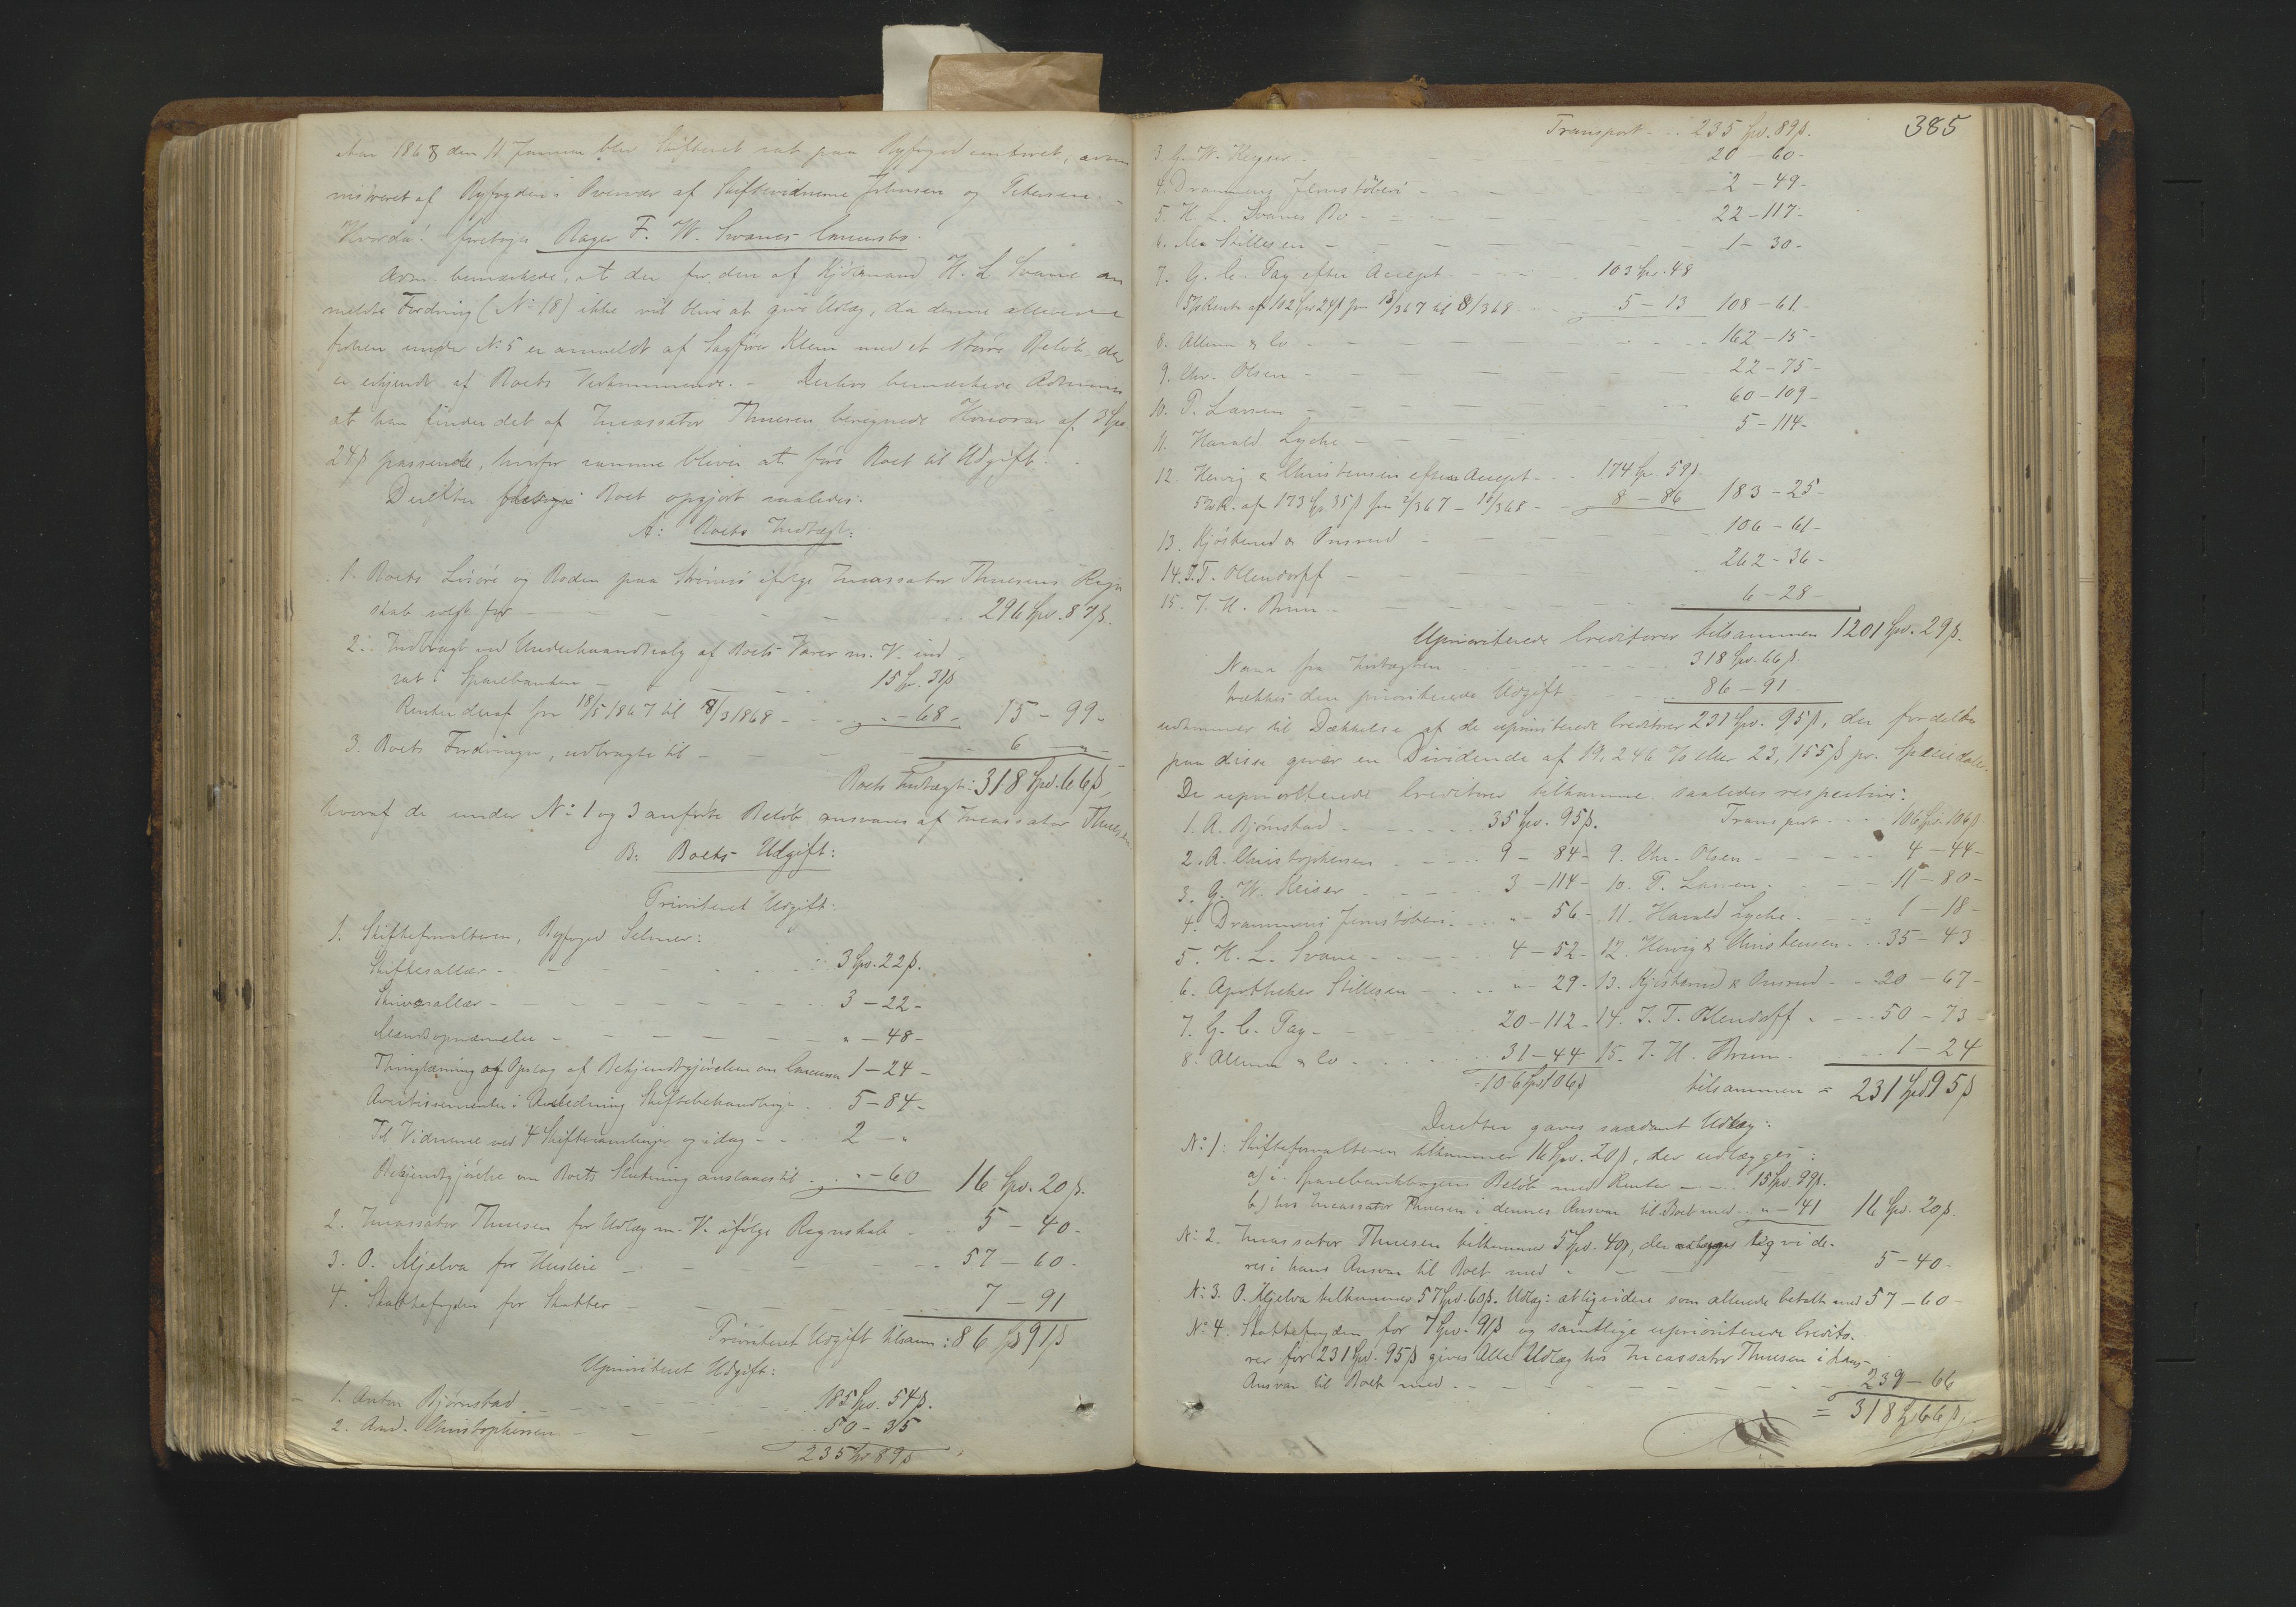 Aar 1868 den 11 Januar blev Skifteret sat paa Byfogedcontoiret, admi
nistreret af Byfogden i Overvær af Skiftevidnerne Johnsen og Petersen. –
Hvorda! foretoges Bager F. W. Svanes Concursbo.
Adm. bemærkede, at der for den af Kjøbmand H. L. Svane an
meldte Fordring (No 18) ikke vil blive at give Udlæg, da denne allerede
forhen under No 5 er anmeldt af Sagfører Klem med et større Beløb, der
er erkjendt af Boets Vedkommende. – Derhos bemærkede Adminis
at han finder det af Incassator Thuesen beregnede Honorar af 3 Spd.
24 ß passende, hvorfor samme bliver at føre Boet til Udgift.
Derefter blev Boet opgjort saaledes:
A: Boets Indtægt:
1. Boets Løsøre og Boden paa Strømsø ifølge Incassator Thuesens Regn
skab solgt for – – – – 296 Spd. 87 ß.
2. Indbragt ved Underhaandssalg af Boets Varer m. V. ind
sat i Sparebanken – – 15 Sp. 31 ß
Renter deraf fra 18/5 1867 til 8/3 1868 – – " – 68 – 15 – 99 –
3. Boets Fordringer, udbragte til – – – 6 – " –
Boets Indtægt: 318 Spd. 66 ß,
hvoraf de under No 1 og 3 anførte Beløb ansvares af Incassator Thuesen
B: Boets Udgift:
Prioriteret Udgift:
1. Skifteforvalteren, Byfoged Selmer:
Skiftesallær – – – 3 Spd. 22 ß.
Skriversallær – – – 3 – 22 –
Mændsopnævnelse – – – " – 48 –
Thinglæsning og Opslag af Bekjendtgjørelsen om Concursen 1 – 24 –
Avertissementer i Anledning Skiftebehandlingen . . 5 – 84 –
Til Vidnerne ved 4 Skiftesamlinger og idag – – 2 – "
Bekjendtgjørelse om Boets Slutning anslaaes til . . " – 60 16 Spd. 20 ß.
2. Incassator Thuesen for Udlæg m. V. ifølge Regnskab – 5 – 40 –
3. O. Mjelva for Husleie – – – 57 – 60 –
4. Skattefogden for Skatter – – – 7 – 91
Prioriteret Udgift tilsam: 86 Sp 91 ß
Uprioriteret Udgift:
1. Anton Bjørnstad – – – 185 Spd. 54 ß.
2. And. Christophersen – – – 50 – 35
235 Sp 89 ß
385
Transport – . . 235 Spd. 89 ß.
3. G. W. Keyser – – – 20 – 60 –
4. Drammens Jernstøberi – – – 2 – 49 –
5. H. L. Svanes Bo – – – 22 – 117 –
6. Stillesen – – – 1 – 30 –
7. G. C. Fay efter Accept – – – 103 Sp. 48
5 % Rente af 102 Spd 24 ß fra 13/3 67 til 8/3 68 . . 5 – 13 108 – 61 –
8. Allum & Co – – – 162 – 15 –
9. Chr. Olsen – – – 22 – 75 –
10. P. Larsen – – – 60 – 109 –
11. Harald Lyche – – – 5 – 114 –
12. Hervig & Christensen efter Accept – . . 174 Sp. 59 ß.
5 % R. af 173 Sp 35 ß fra 2/3 67 – 10/3 68 – – 8 – 86 183 – 25 –
13. Kjøsterud & Onsrud – – – 106 – 61 –
14. J. T. Ollendorff – – – 262 – 36 –
15. J. H. Bruun – – – 6 – 28 –
Uprioriterede Creditorer tilsammen 1201 Spd. 29 ß.
Naar fra Indtægten . . . 318 Spd. 66 ß
trækkes den prioriterede Udgift – . . . 86 – 91 –
udkommer til Dækkelse af de uprioriterede Creditorer 231 Spd. 95 ß, der fordelte
paa disse giver en Dividende af 19,246 % eller 23,155 ß pr. Speciedaler.
De uprioriterede Creditorer tilkomme saaledes respective:
1. A. Bjørnstad – – – 35 Spd. 95 ß. Transport . . . 106 Spd 106 ß
2. A. Christophersen . – – . . 9 – 84 – 9. Chr. Olsen – – – 4 – 44 –
3. G. W. Keiser – – – 3 – 114 – 10. P. Larsen – – – 11 – 80 –
4. Drammens Jernstøberi . . . " – 56 – 11. Harald Lyche – – – 1 – 18 –
5. H. L. Svane – – – 4 – 52 – 12. Hervig & Christensen . . 35 – 43
6. Apotheker Stillesen – – – " – 29 – 13. Kjøsterud & Onsrud – – 20 – 67 –
7. G. C. Fay – – – 20 – 112 – 14. J. T. Ollendorff . – – 50 – 73 –
8. Allum & Co . . . . 31 – 44 15. J. H. Bruun – . . . 1 – 24
106 Spd 106 ß tilsammen = 231 Spd 95 ß
Derefter gaves saadant Udlæg:
No 1: Skifteforvalteren tilkommer 16 Spd. 20 ß, der udlægges:
a) i Sparebankbogens Beløb med Renter – – . . 15 Spd. 99 ß.
b) hos Incassator Thuesen i dennes Ansvar til Boet med . . " – 41 16 Spd. 20 ß.
No 2. Incassator Thuesen tilkommer 5 Spd. 40 ß, der liqvide-
res i hans Ansvar til Boet med – – – 5 – 40 –
No 3. O. Mjelva tilkommer 57 Spd. 60 ß. Udlæg: at liqvidere som allerede betalt med 57 – 60 –
No 4. Skattefogden for 7 Spd. 91 ß og samtlige uprioriterede Credito-
rer for 231 Spd. 95 ß gives Alle Udlæg hos Incassator Thuesen i hans
Ansvar til Boet med – – – 239 – 66
= 318 Sp 66 ß